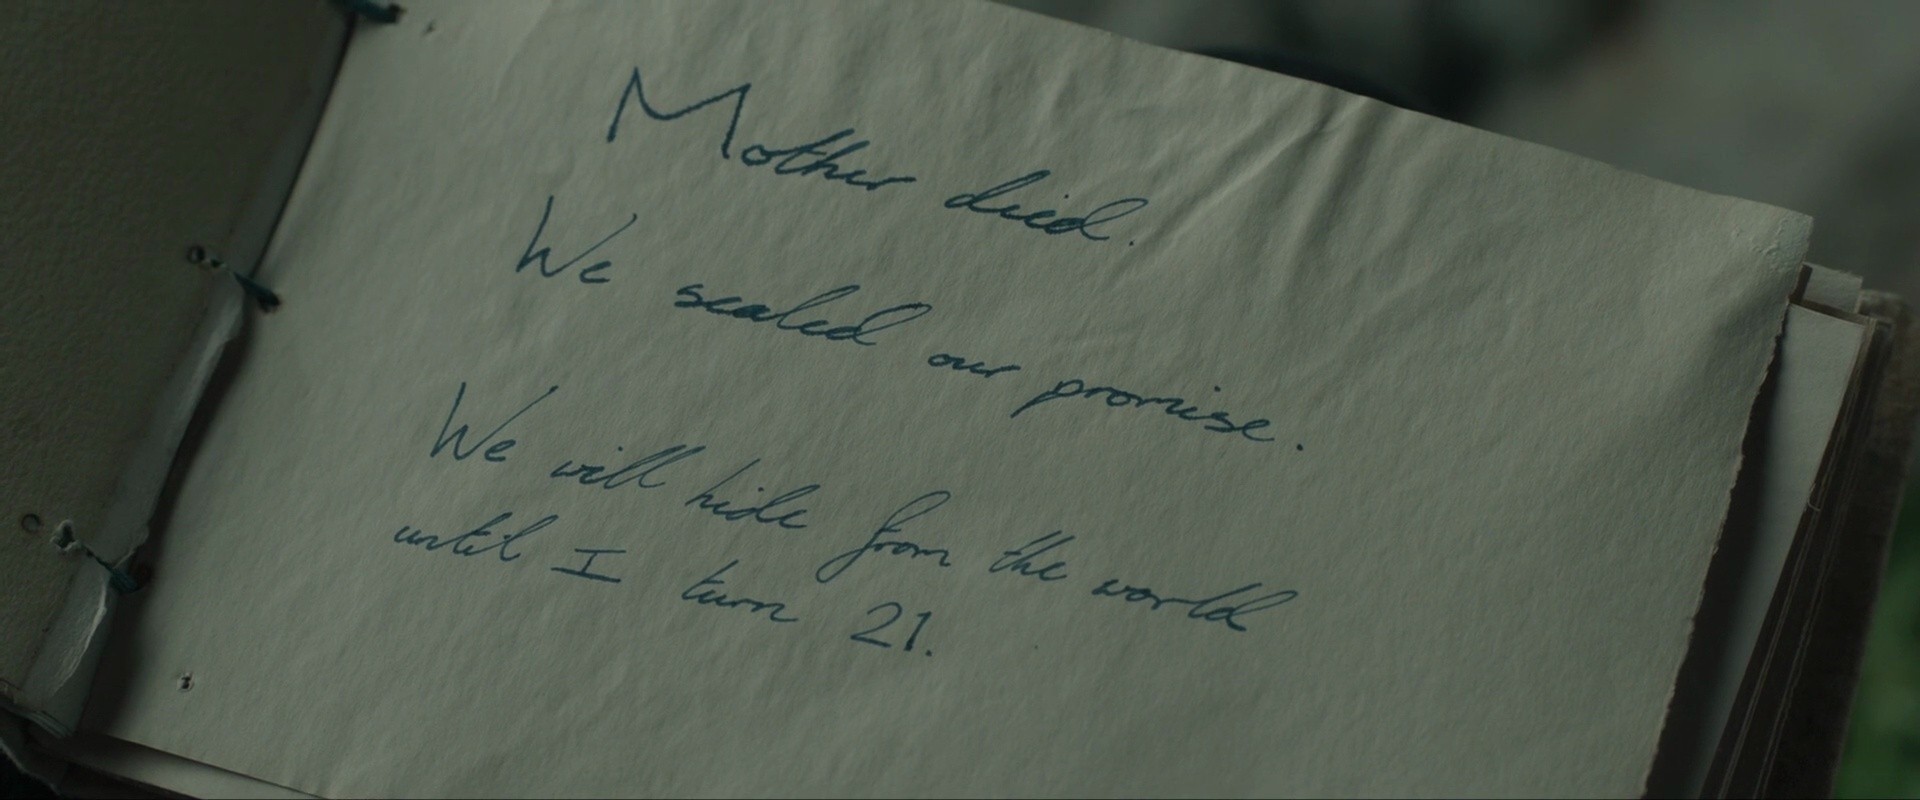 Mother died.
We sealed our promise.
We will hide from the world
until I turn 21.